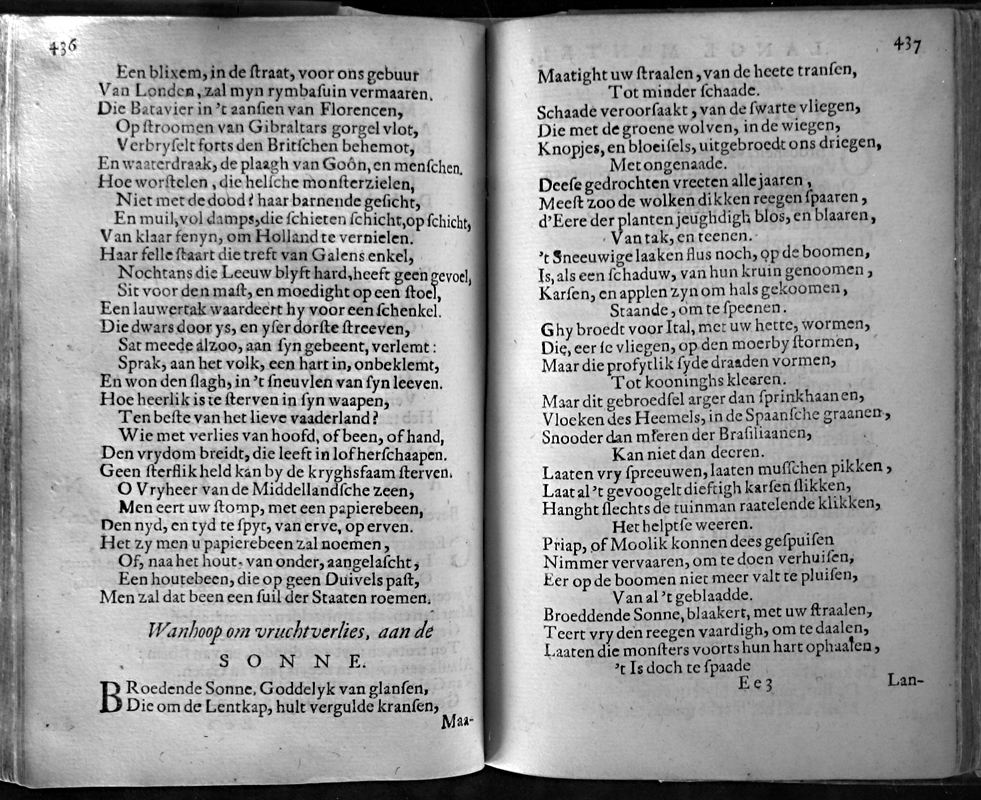 436
Een blixem, in de ſtraat, voor ons gebuur
Van Londen, zal myn rymbaſuin vermaaren.
Die Batavier in 't aanſien van Florencen,
Op ſtroomen van Gibraltars gorgel vlot,
Verbryſelt forts den Britſchen behemot,
En waaterdraak, de plaagh van Goôn, en menſchen.
Hoe worſtelen, die helſche monſterzielen,
Niet met de dood? haar barnende geſicht,
En muil, vol damps, die ſchieten ſchicht, op ſchicht,
Van klaar fenyn, om Holland te vernielen.
Haar felle ſtaart die treft van Galens enkel,
Nochtans die Leeuw blyft hard, heeft geen gevoel,
Sit voor den maſt, en moedight op een ſtoel,
Een lauwertak waardeert hy voor een ſchenkel.
Die dwars door ys, en yſer dorſte ſtreeven,
Sat meede alzoo, aan ſyn gebeent, verlemt:
Sprak, aan het volk, een hart in, onbeklemt,
En won den ſlagh, in 't ſneuvlen van ſyn leeven.
Hoe heerlik is te ſterven in ſyn waapen,
Ten beſte van het lieve vaaderland?
Wie met verlies van hoofd, of been, of hand,
Den vrydom breidt, die leeft in lof herſchaapen.
Geen ſterflik held kan by de kryghsfaam ſterven.
O Vryheer van de Middellandſche zeen,
Men eert uw ſtomp, met een papierebeen,
Den nyd, en tyd te ſpyt, van erve, op erven.
Het zy men u papierebeen zal noemen,
Of, naa het hout, van onder, aangelaſcht,
Een houtebeen, die op geen Duivels paſt,
Men zal dat been een ſuil der Staaten roemen.
Wanhoop om vruchtverlies, aan de
SONNE.
BRoedende Sonne, Goddelyk van glanſen,
Die om de Lentkap, hult vergulde kranſen,
Maa-
437
Maatight uw ſtraalen, van de heete tranſen,
Tot minder ſchaade.
Schaade veroorſaakt, van de ſwarte vliegen,
Die met de groene wolven, in de wiegen,
Knopjes, en bloeiſels, uitgebroedt ons driegen,
Met ongenaade.
Deeſe gedrochten vreeten alle jaaren,
Meeſt zoo de wolken dikken reegen ſpaaren,
d'Eere der planten jeughdigh blos, en blaaren,
Van tak, en teenen.
't Sneeuwige laaken flus noch, op de boomen,
Is, als een ſchaduw, van hun kruin genoomen,
Karſen, en applen zyn om hals gekoomen,
Staande, om te ſpeenen.
Ghy broedt voor Ital, met uw hette, wormen,
Die, eer ſe vliegen, op den moerby ſtormen,
Maar die profytlik ſyde draaden vormen,
Tot kooninghs kleeren.
Maar dit gebroedſel arger dan ſprinkhaanen,
Vloeken des Heemels, in de Spaanſche graanen,
Snooder dan mieren der Braſiliaanen,
Kan niet dan deeren.
Laaten vry ſpreeuwen, laaten muſſchen pikken,
Laat al 't gevoogelt dieftigh karſen ſlikken,
Hanght ſlechts de tuinman raatelende klikken,
Het helpt ſe weeren.
Priap, of Moolik konnen dees geſpuiſen
Nimmer vervaaren, om te doen verhuiſen,
Eer op de boomen niet meer valt te pluiſen,
Van al 't geblaadde.
Broeddende Sonne, blaakert, met uw ſtraalen,
Teert vry den reegen vaardigh, om te daalen,
Laaten die monſters voorts hun hart ophaalen,
't Is doch te ſpaade
Ee3
Lan-